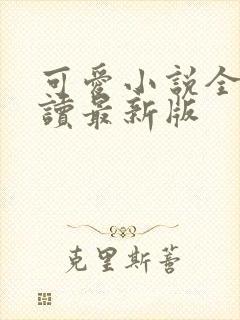 可愛小說全
讀最新版
克里斯蒼